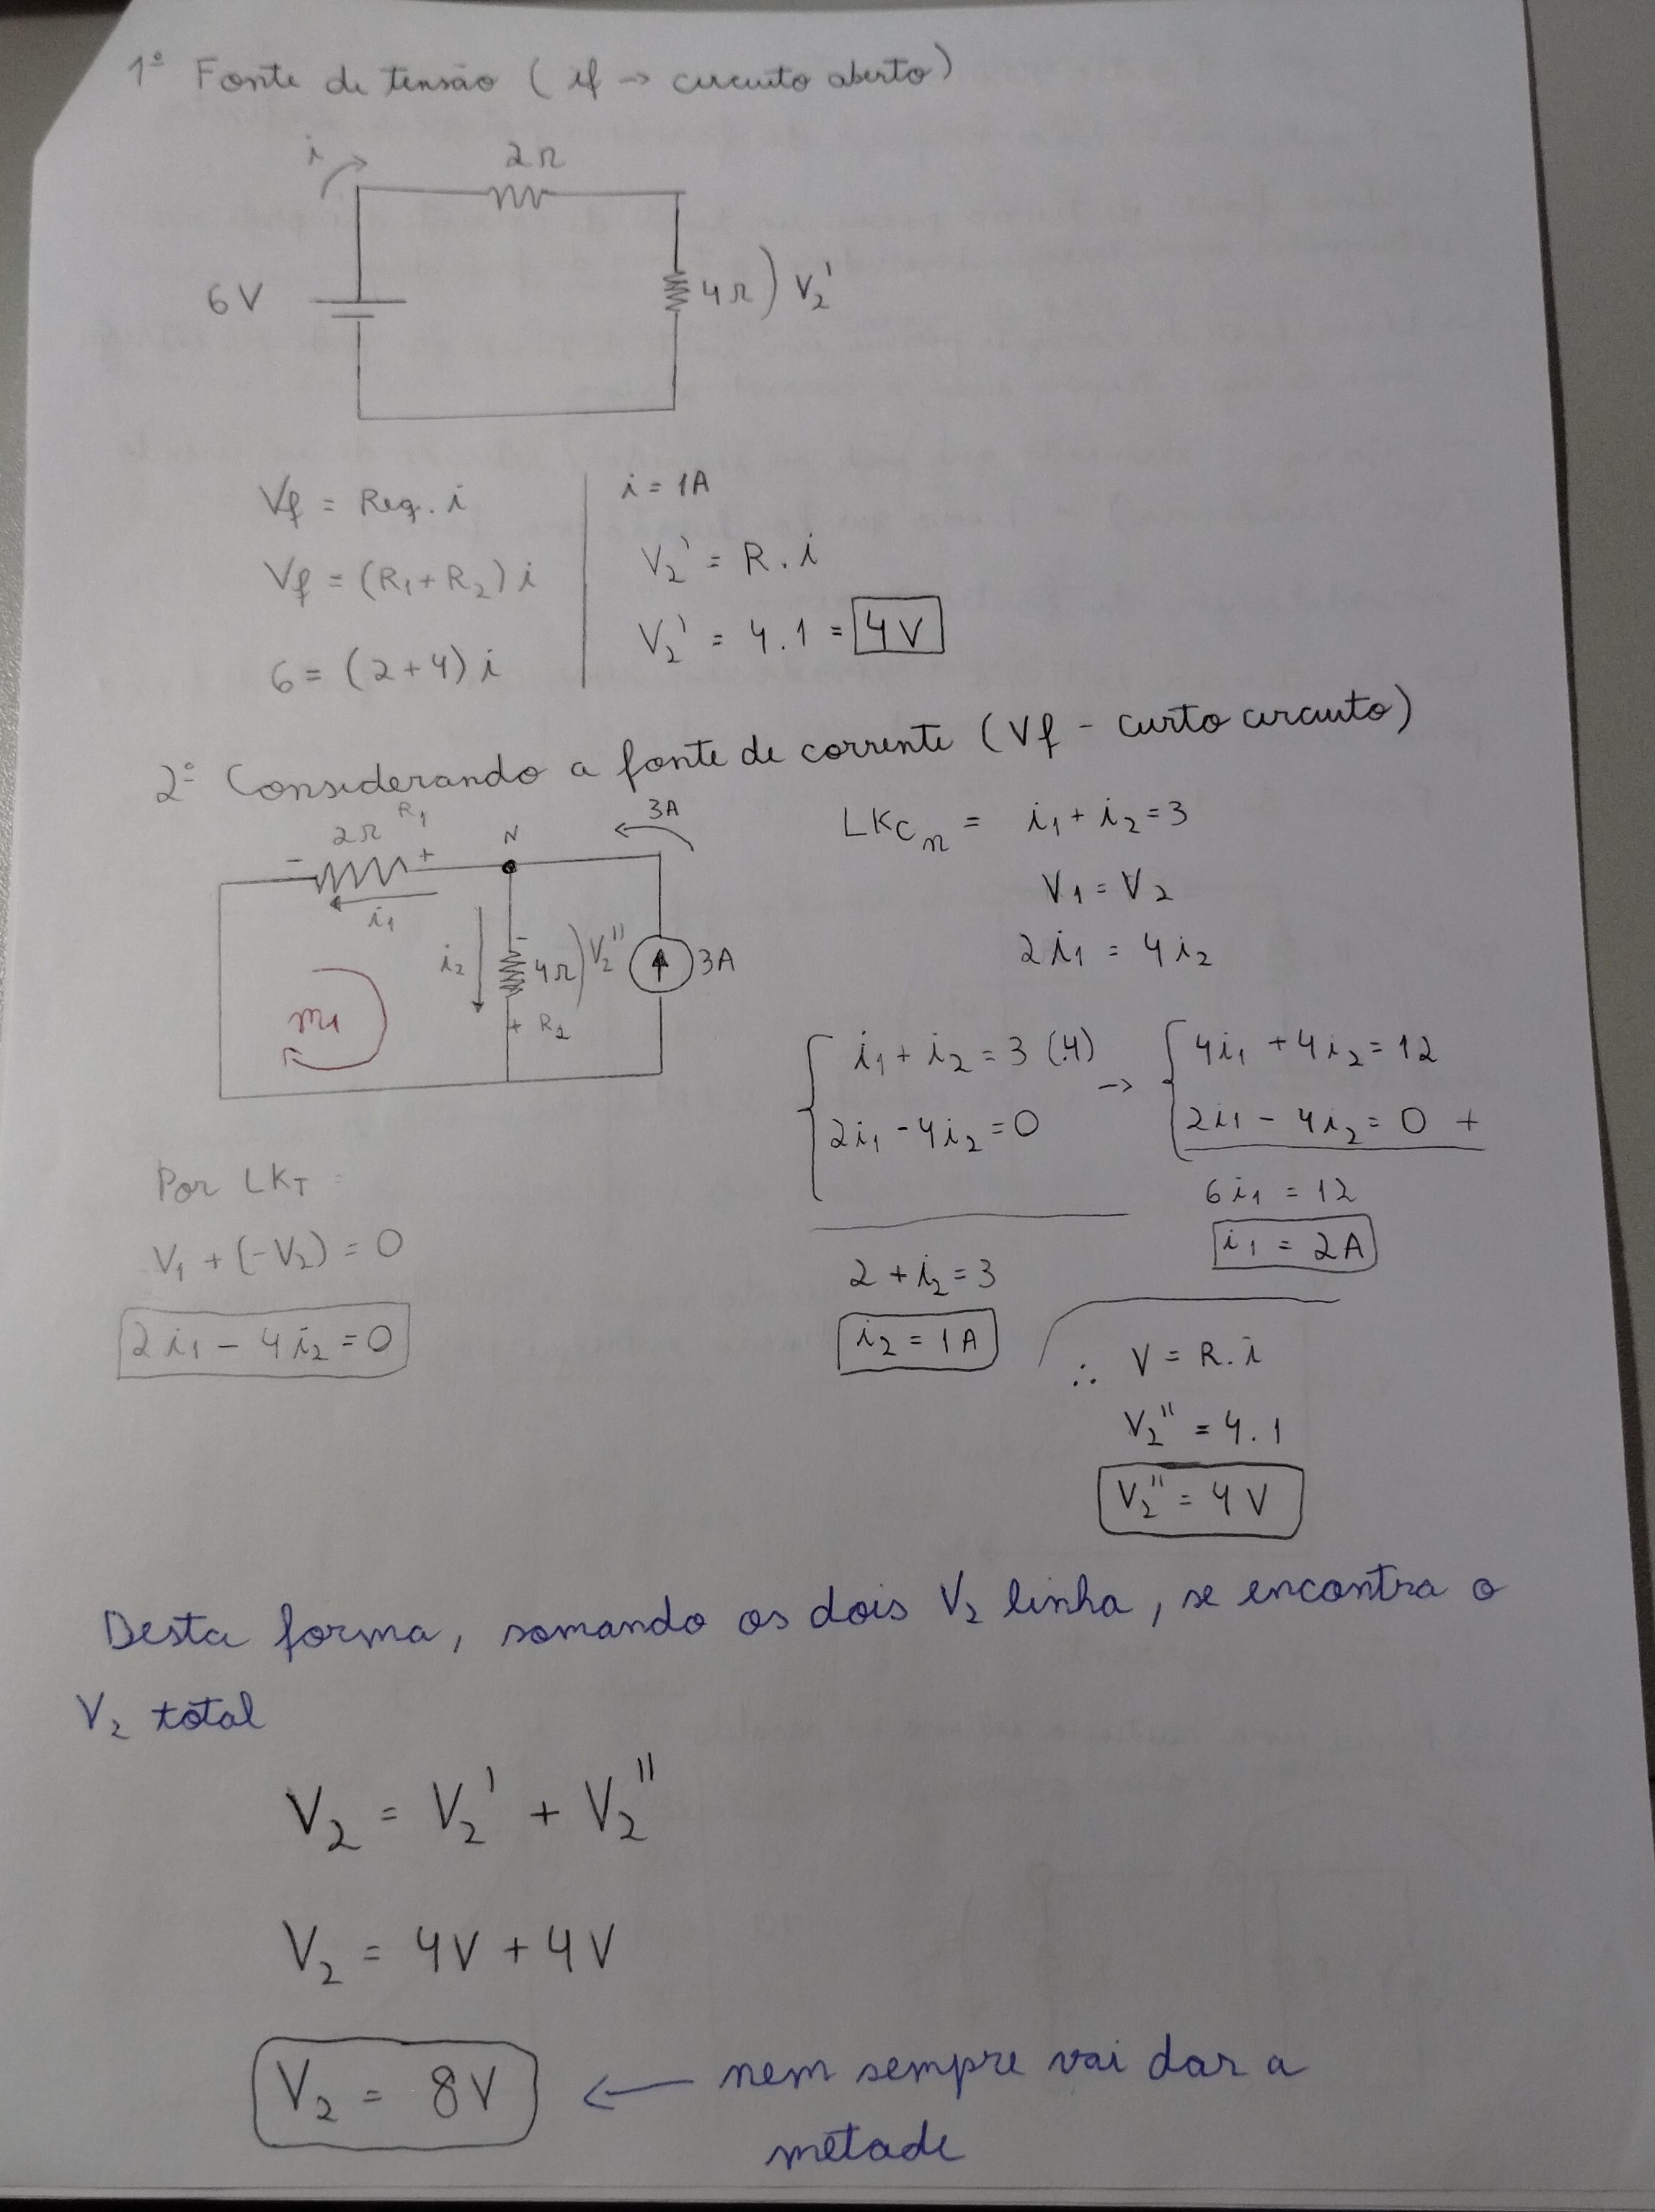 1º Fonte de tensão (if → circuito aberto)
i
2Ω
6V
4Ω) V₂'
Vf = Req. i
Vf = (R₁ + R₂) i
6 = (2+4) i
i = 1A
V₂' = R. i
V₂' = 4.1 = 4V
2º Considerando a fonte de corrente (Vf - curto circuito)
R₁
2Ω
- +
N
3A
i₁
i₂
-
4Ω) V₂''
3A
+ R₂
m₁
Por LKT =
V₁ + (-V₂) = 0
2i₁ - 4i₂ = 0
LKCₙ = i₁ + i₂ = 3
V₁ = V₂
2i₁ = 4i₂
{ i₁ + i₂ = 3 (.4) → { 4i₁ + 4i₂ = 12
2i₁ - 4i₂ = 0 2i₁ - 4i₂ = 0 +
6i₁ = 12
i₁ = 2A
2 + i₂ = 3
i₂ = 1A
∴ V = R. i
V₂'' = 4.1
V₂'' = 4V
Desta forma, somando os dois V₂ linha, se encontra o
V₂ total
V₂ = V₂' + V₂''
V₂ = 4V + 4V
V₂ = 8V ← nem sempre vai dar a
metade